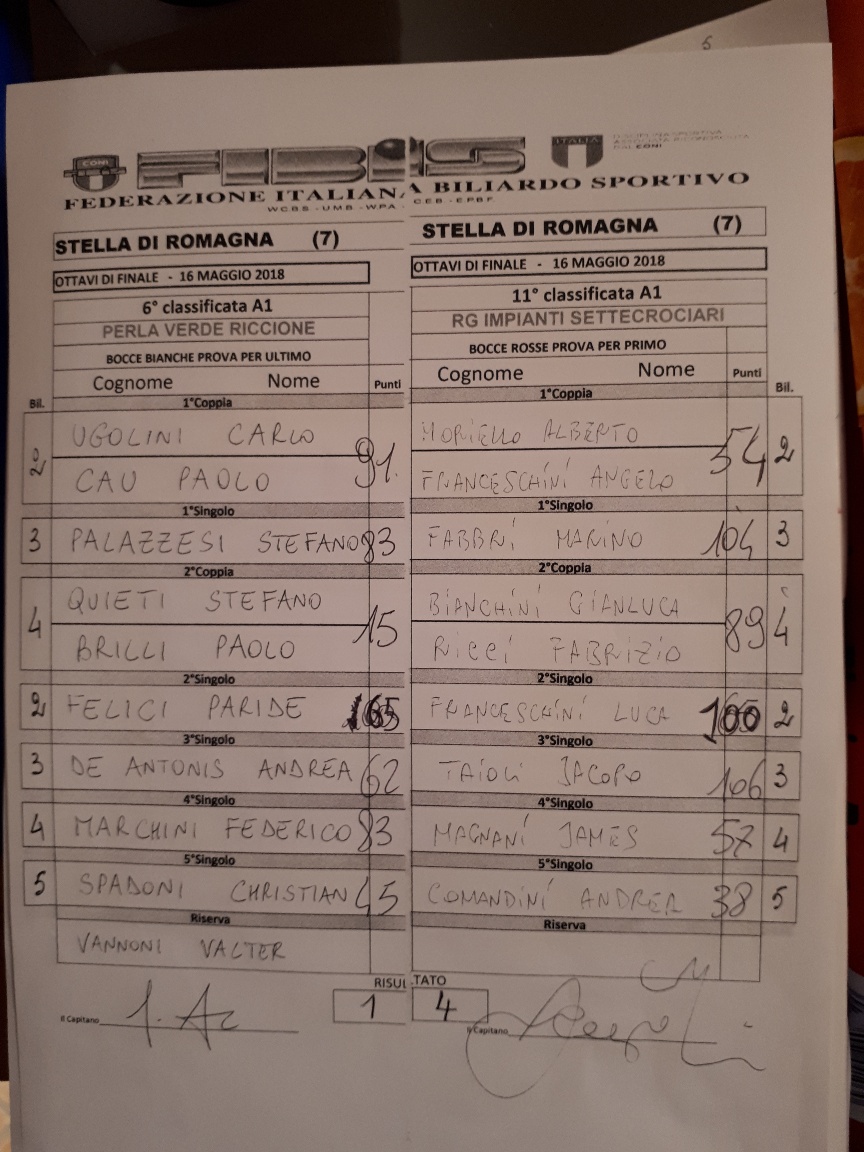 5
CONI FIBIS ITALIA DISCIPLINA SPORTIVA ASSOCIATA RICONOSCIUTA DAL CONI
FEDERAZIONE ITALIANA BILIARDO SPORTIVO
W.C.B.S - U.M.B - W.P.A - C.E.B - E.P.B.F.
STELLA DI ROMAGNA (7)
OTTAVI DI FINALE - 16 MAGGIO 2018
6° classificata A1
PERLA VERDE RICCIONE
BOCCE BIANCHE PROVA PER ULTIMO
Cognome Nome Punti
Bil. 1°Coppia
2 UGOLINI CARLO 91
CAU PAOLO
1°Singolo
3 PALAZZESI STEFANO 83
2°Coppia
4 QUIETI STEFANO 15
BRILLI PAOLO
2°Singolo
2 FELICI PARIDE
3°Singolo
3 DE ANTONIS ANDREA 62
4°Singolo
4 MARCHINI FEDERICO 83
5°Singolo
5 SPADONI CHRISTIAN 45
Riserva
VANNONI VALTER
STELLA DI ROMAGNA (7)
OTTAVI DI FINALE - 16 MAGGIO 2018
11° classificata A1
RG IMPIANTI SETTECROCIARI
BOCCE ROSSE PROVA PER PRIMO
Cognome Nome Punti Bil.
1°Coppia
MORIELLO ALBERTO 54 2
FRANCESCHINI ANGELO
1°Singolo
FABBRI MARINO 104 3
2°Coppia
BIANCHINI GIANLUCA 89 4
RICCI FABRIZIO
2°Singolo
FRANCESCHINI LUCA 100 2
3°Singolo
TAIOLI JACOPO 106 3
4°Singolo
MAGNANI JAMES 57 4
5°Singolo
COMANDINI ANDREA 38 5
Riserva
RISULTATO
1 4
Il Capitano
Il Capitano